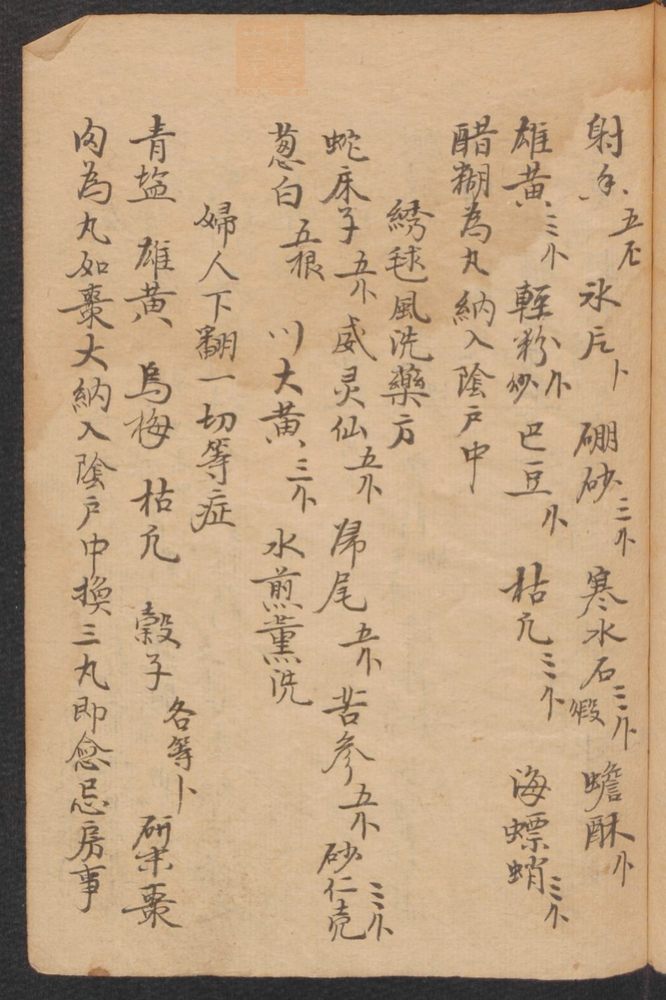 射香五厘 氷片卜 硼砂三卜 寒水石三卜煅 蟾酥卜
雄黄三卜 輕粉卜炒 巴豆卜 枯凢三卜 海螵蛸三卜
醋糊為丸納入陰戸中
綉毬風洗藥方
蛇床子五卜 威灵仙五卜 歸尾五卜 苦参五卜 砂仁壳三卜
葱白五根 川大黄三卜 水煎薰洗
婦人下翻一切等症
青塩 雄黄 烏梅 枯凢 縠子 各等卜 研末棗
肉為丸如棗大納入陰戸中换三丸即愈忌房事